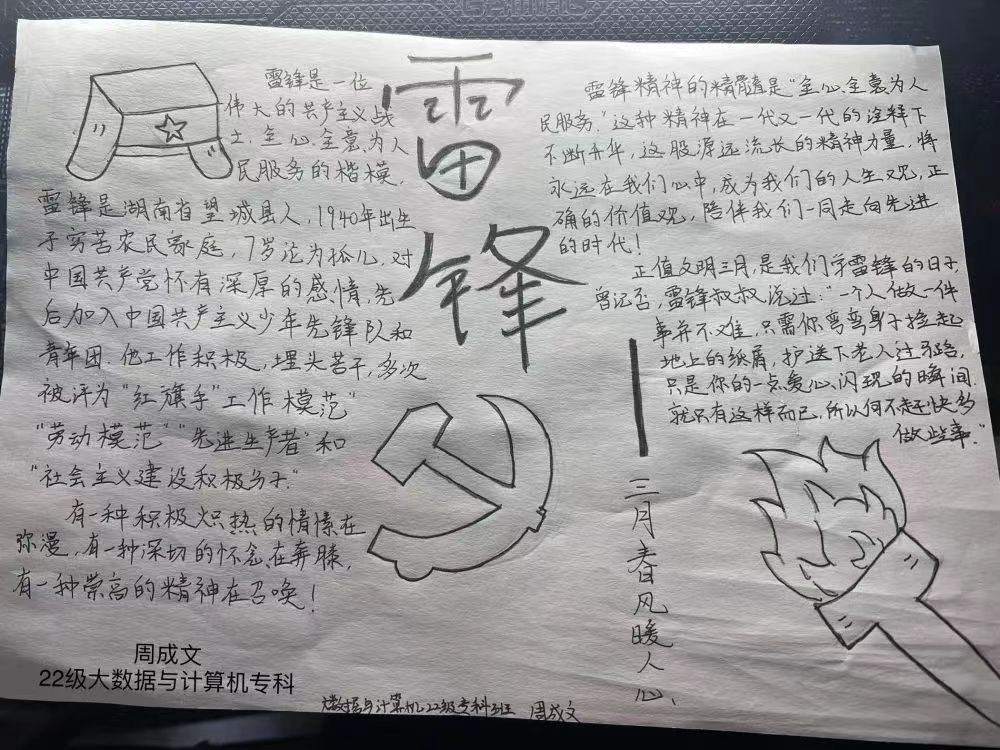 雷锋
雷锋是一位
伟大的共产主义战
士，全心全意为人
民服务的楷模，
雷锋是湖南省望城县人，1940年出生
于穷苦农民家庭，7岁沦为孤儿，对
中国共产党怀有深厚的感情，先
后加入中国共产主义少年先锋队和
青年团，他工作积极，埋头苦干，多次
被评为“红旗手”工作模范”
“劳动模范”“先进生产者”和
“社会主义建设积极分子”
有一种积极炽热的情愫在
弥漫，有一种深切的怀念在奔腾，
有一种崇高的精神在召唤！
雷锋精神的精髓是“全心全意为人
民服务”这种精神在一代又一代的诠释下
不断升华，这股源远流长的精神力量，将
永远在我们心中，成为我们的人生观，正
确的价值观，陪伴我们一同走向先进
的时代！
正值文明三月，是我们学雷锋的日子，
曾记否，雷锋叔叔说过：“一个人做一件
事并不难，只需你弯弯身子捡起
地上的纸屑，护送下老人过马路，
只是你的一点爱心闪现的瞬间
就只有这样而已，所以何不赶快多
做些事”
三月春风暖人心、
周成文
22级大数据与计算机专科
大数据与计算机22级专科班 周成文